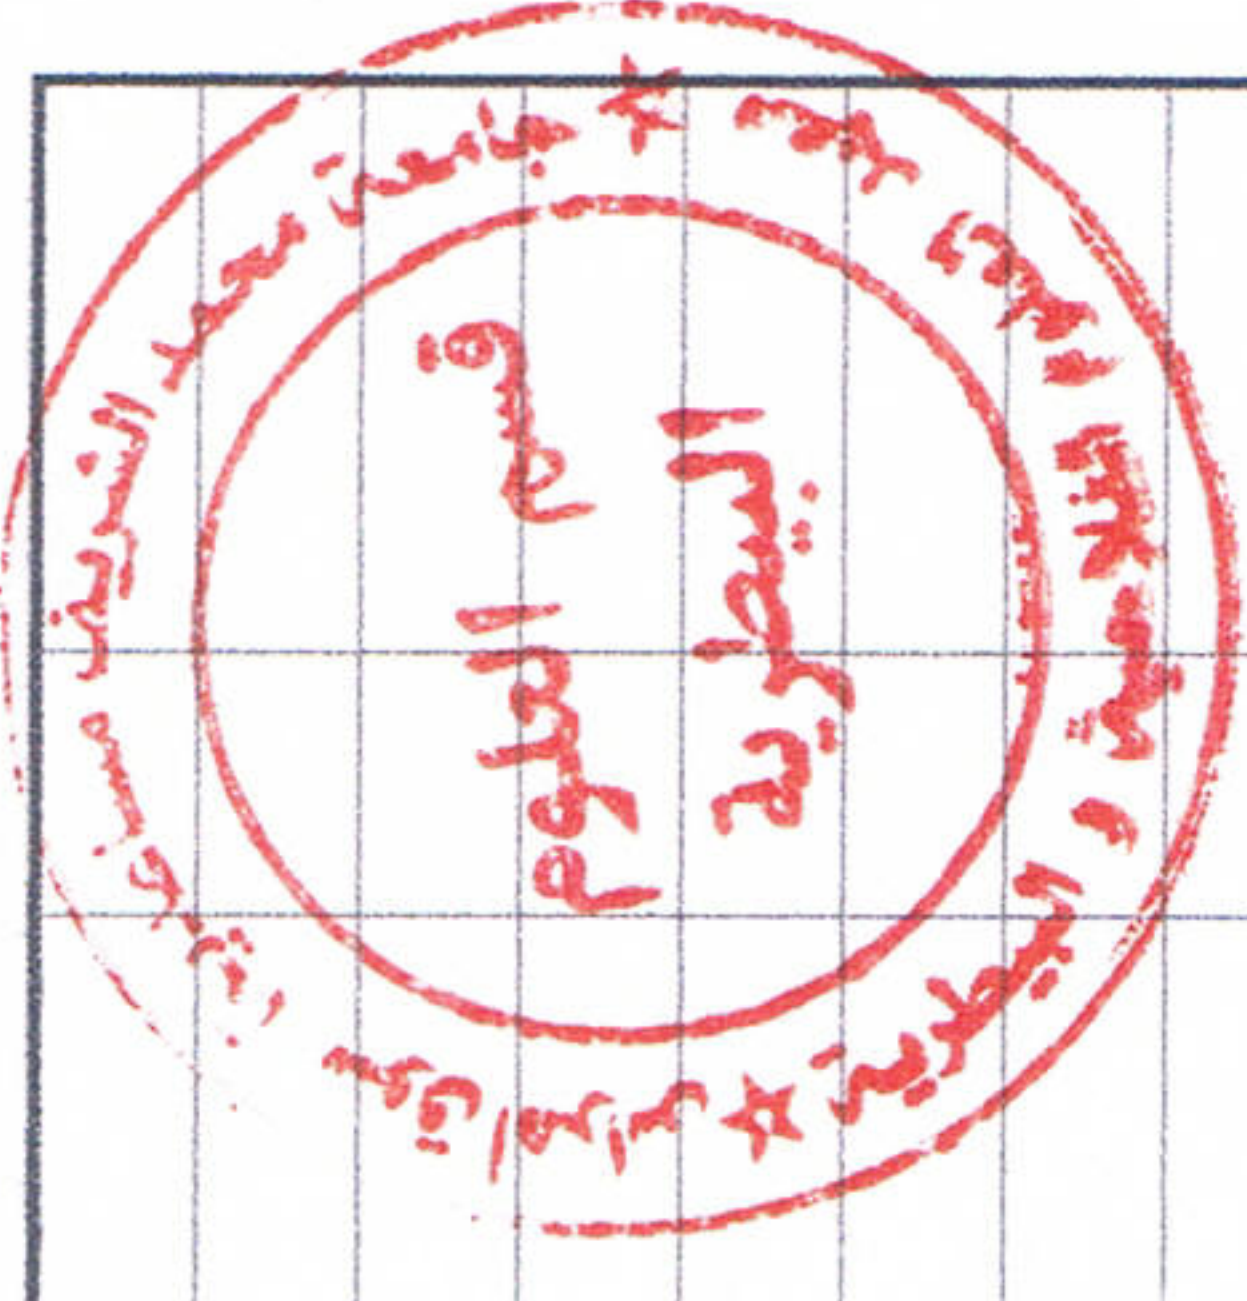 جامعة محمد الشريف مساعدية سوق أهراس
معهد العلوم الفلاحية و البيطرية
قسم العلوم
البيطرية